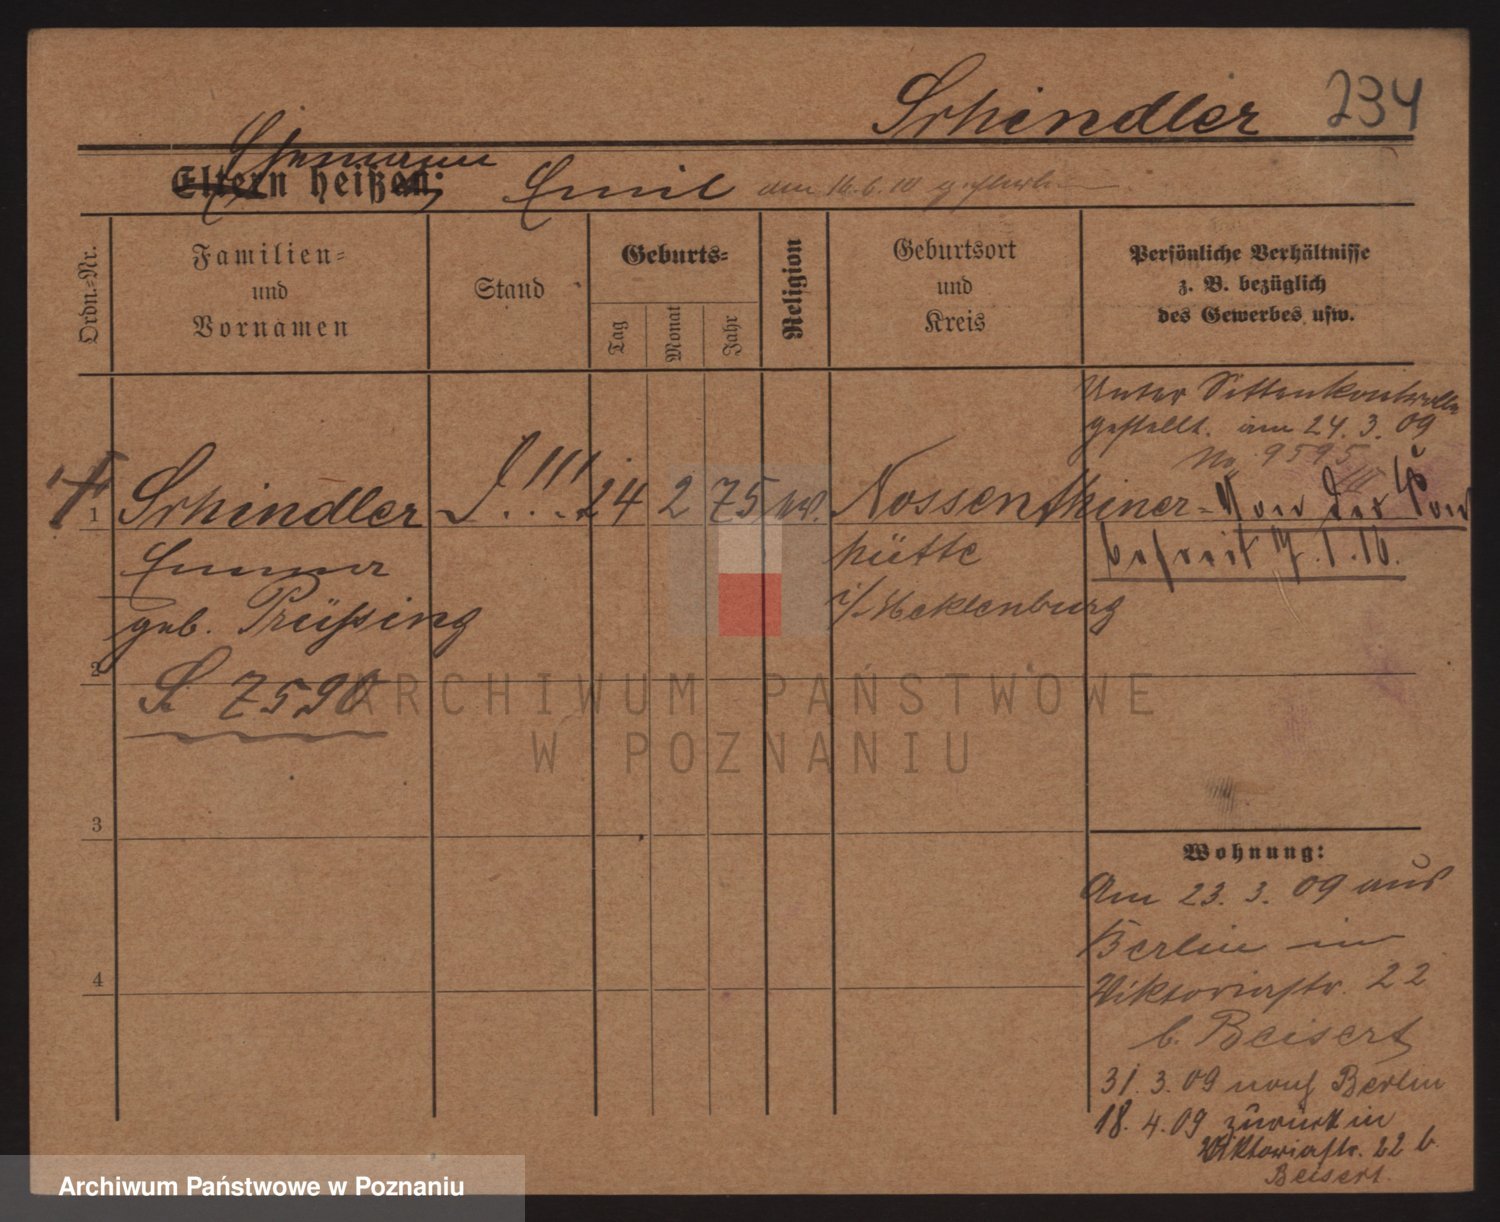 Schindler 234
Ehemann
Eltern heißen: Emil am 16.6.10 gestorben
Ordn.-Nr.
Familien-
und
Vornamen
Stand
Geburts-
Tag
Monat
Jahr
Religion
Geburtsort
und
Kreis
Persönliche Verhältnisse
z. B. bezüglich
des Gewerbes usw.
Unter Sittenkontrolle
gestellt. am 24.3.09
No. 9595
1 Schindler 24 2 75 Nossenthiner-
Von der
befreit 7.1.10.
Emma
hütte
geb. Prüssing
i/Mecklenburg
2
S. 7590
3
4
Wohnung:
Am 23.3.09 aus
Berlin in
Viktoriastr. 22
b. Beisert
31.3.09 nach Berlin
18.4.09 zurück in
Viktoriastr. 22 b.
Beisert.
ARCHIWUM PAŃSTWOWE
W POZNANIU
Archiwum Państwowe w Poznaniu